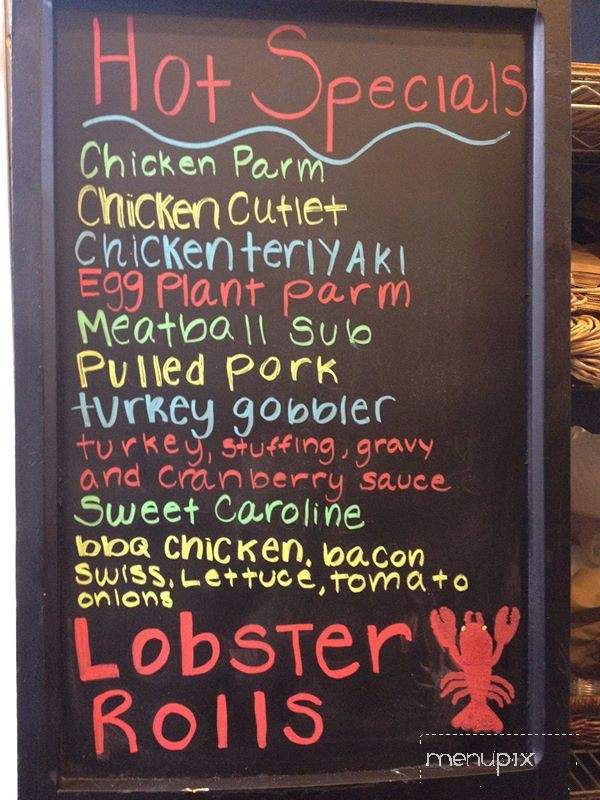 Hot Specials
Chicken Parm
Chicken Cutlet
Chicken teriyaki
Egg Plant parm
Meatball sub
Pulled Pork
turkey gobbler
turkey, stuffing, gravy
and cranberry sauce
Sweet Caroline
bbq chicken, bacon
swiss, Lettuce, tomato
onions
Lobster
Rolls
menupix